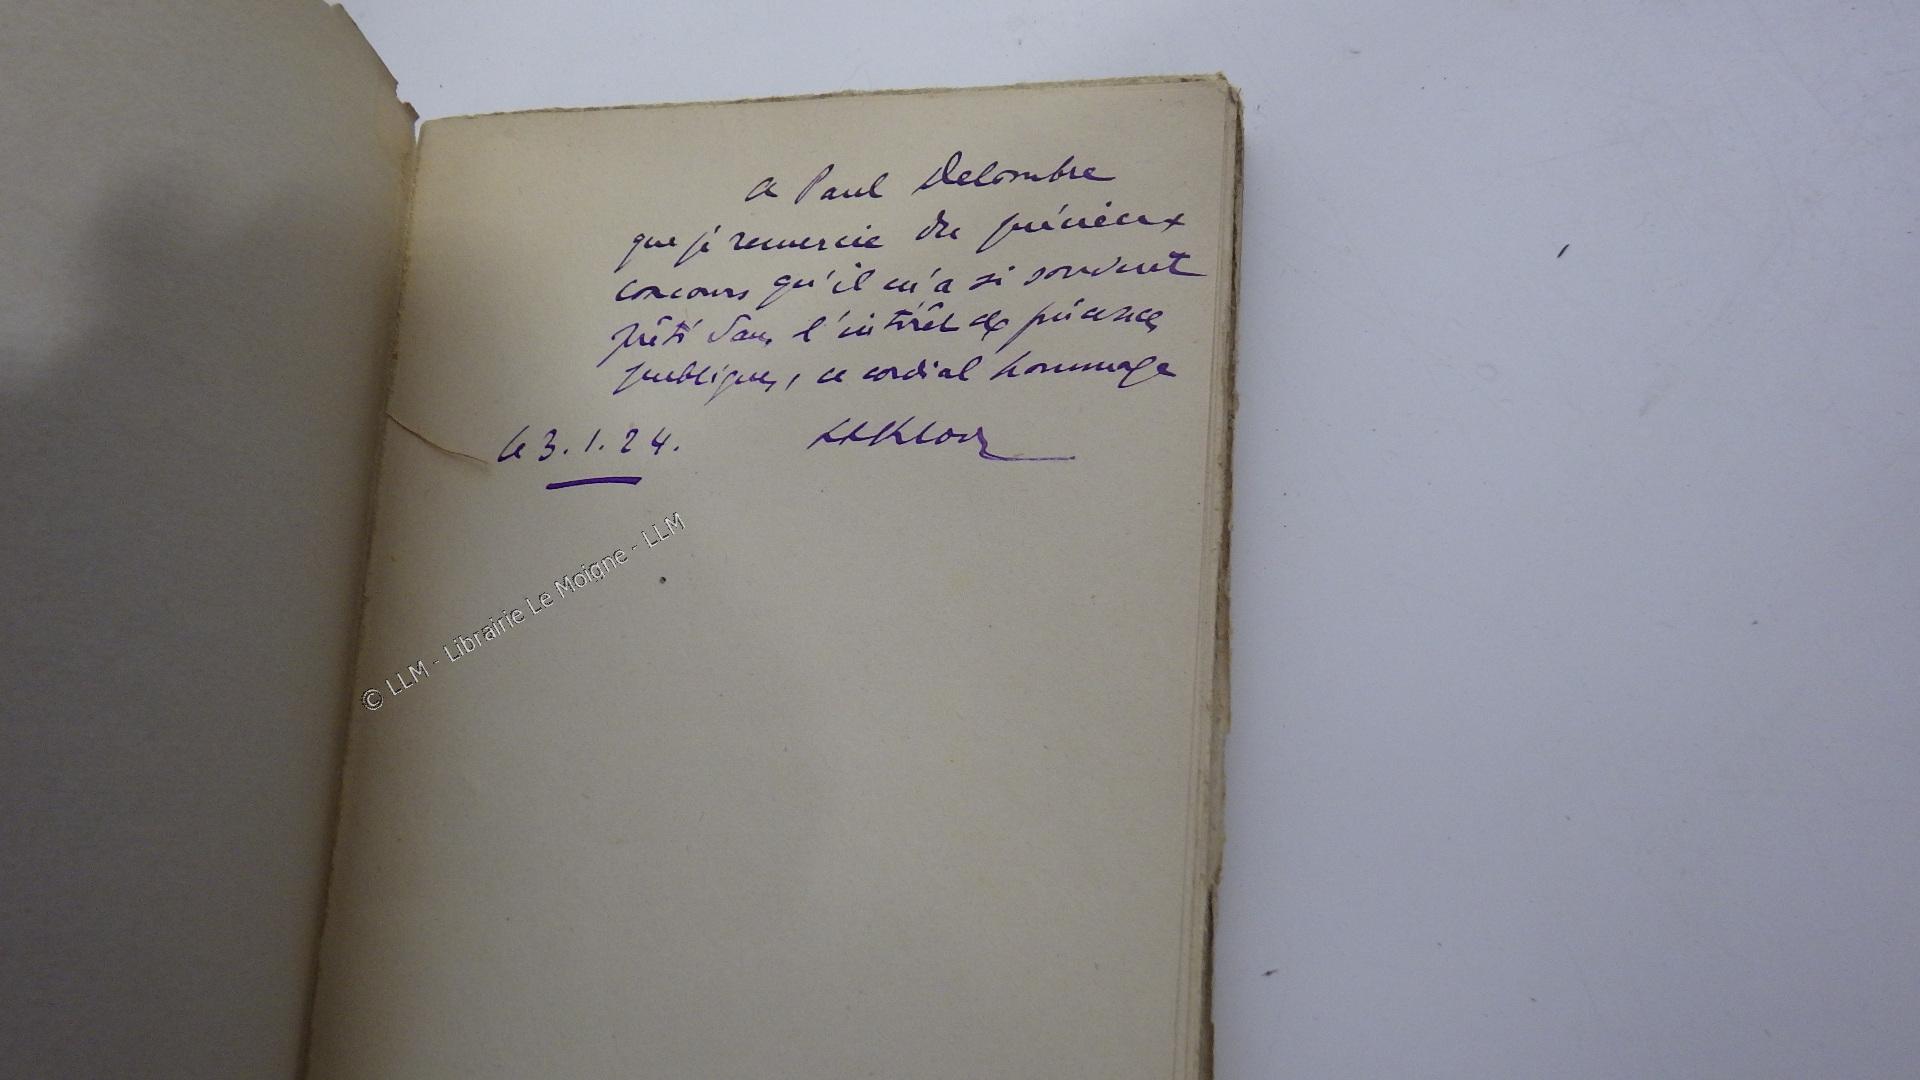 a Paul Delombre
que je remercie du précieux
concours qu'il m'a si souvent
prêté dans l'intérêt des finances
publiques, ce cordial hommage
le 3.1.24.
© LLM - Librairie Le Moigne - LLM